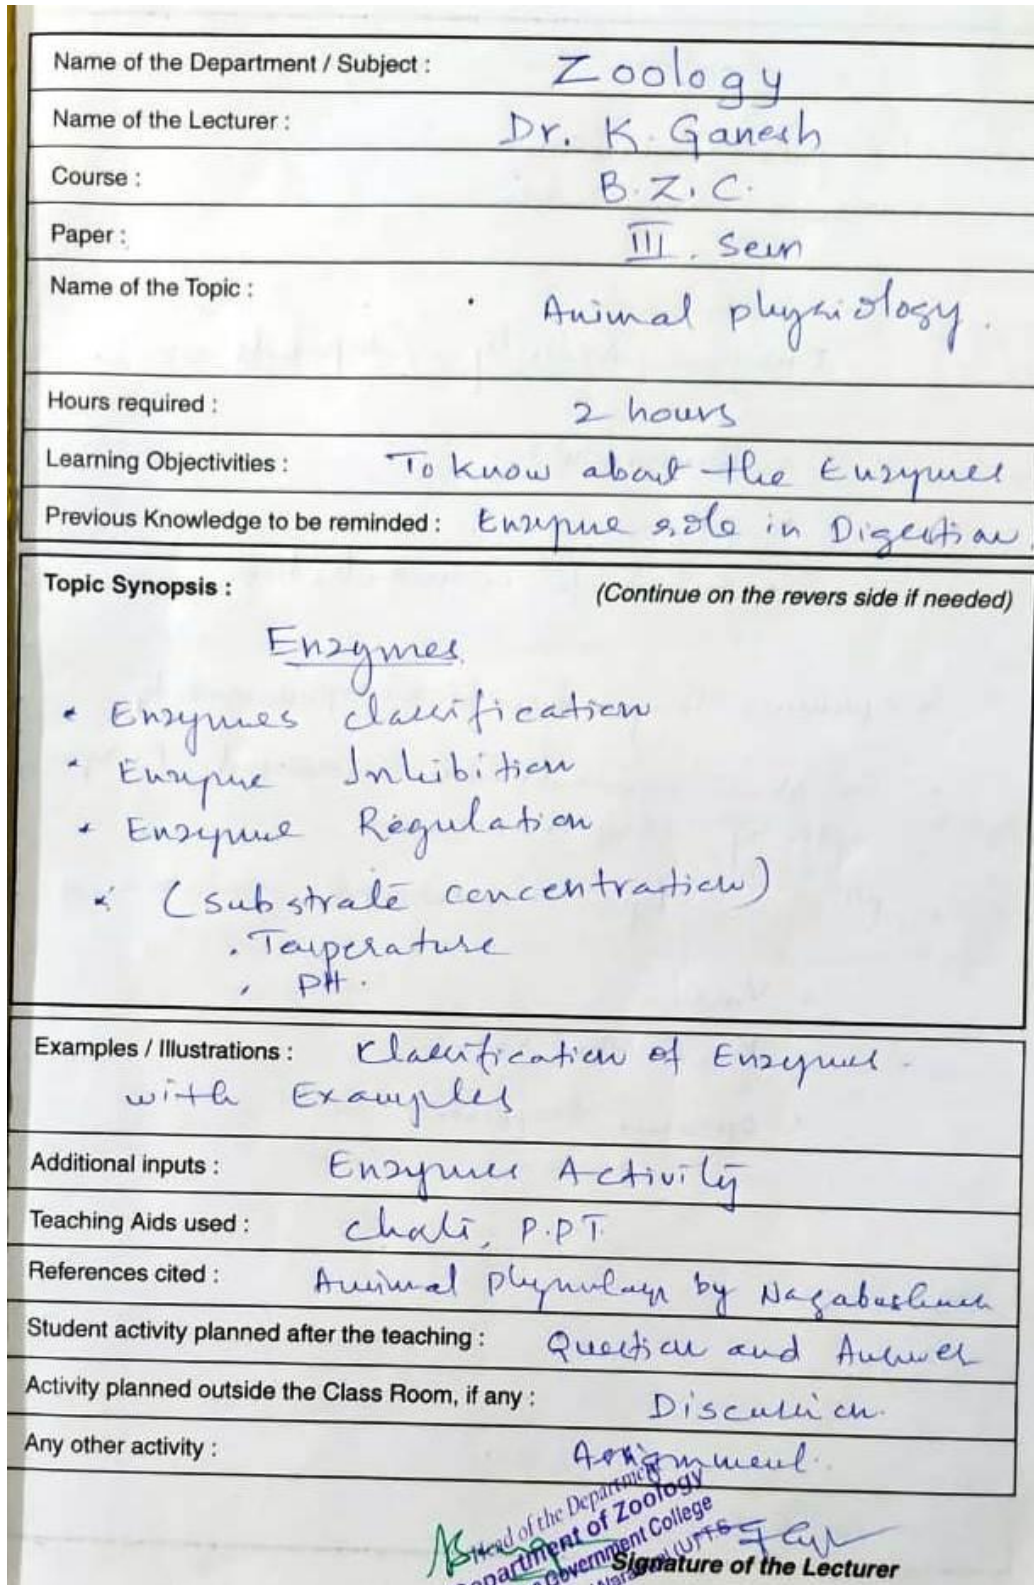 Name of the Department / Subject : Zoology
Name of the Lecturer : Dr. K. Ganesh
Course : B.Z.C.
Paper : III. Sem
Name of the Topic : Animal physiology.
Hours required : 2 hours
Learning Objectivities : To know about the Enzymes
Previous Knowledge to be reminded : Enzyme role in Digestion.
Topic Synopsis : (Continue on the revers side if needed)
Enzymes
• Enzymes classification
• Enzyme Inhibition
• Enzyme Regulation
• (Substrate concentration)
. Temperature
, PH.
Examples / Illustrations : Classification of Enzymes
with Examples
Additional inputs : Enzymes Activity
Teaching Aids used : P.P.T.
References cited : Animal Physiology by
Student activity planned after the teaching : Question and Answer
Activity planned outside the Class Room, if any : Discussion.
Any other activity : Assignment.
Head of the Department
Department of Zoology
Government College
Signature of the Lecturer